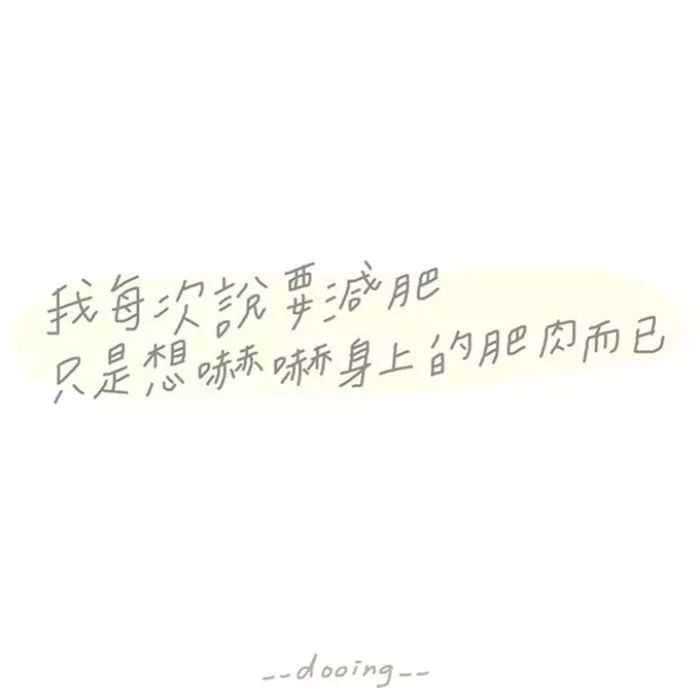 我每次說要減肥
只是想嚇嚇身上的肥肉而已
__dooing__